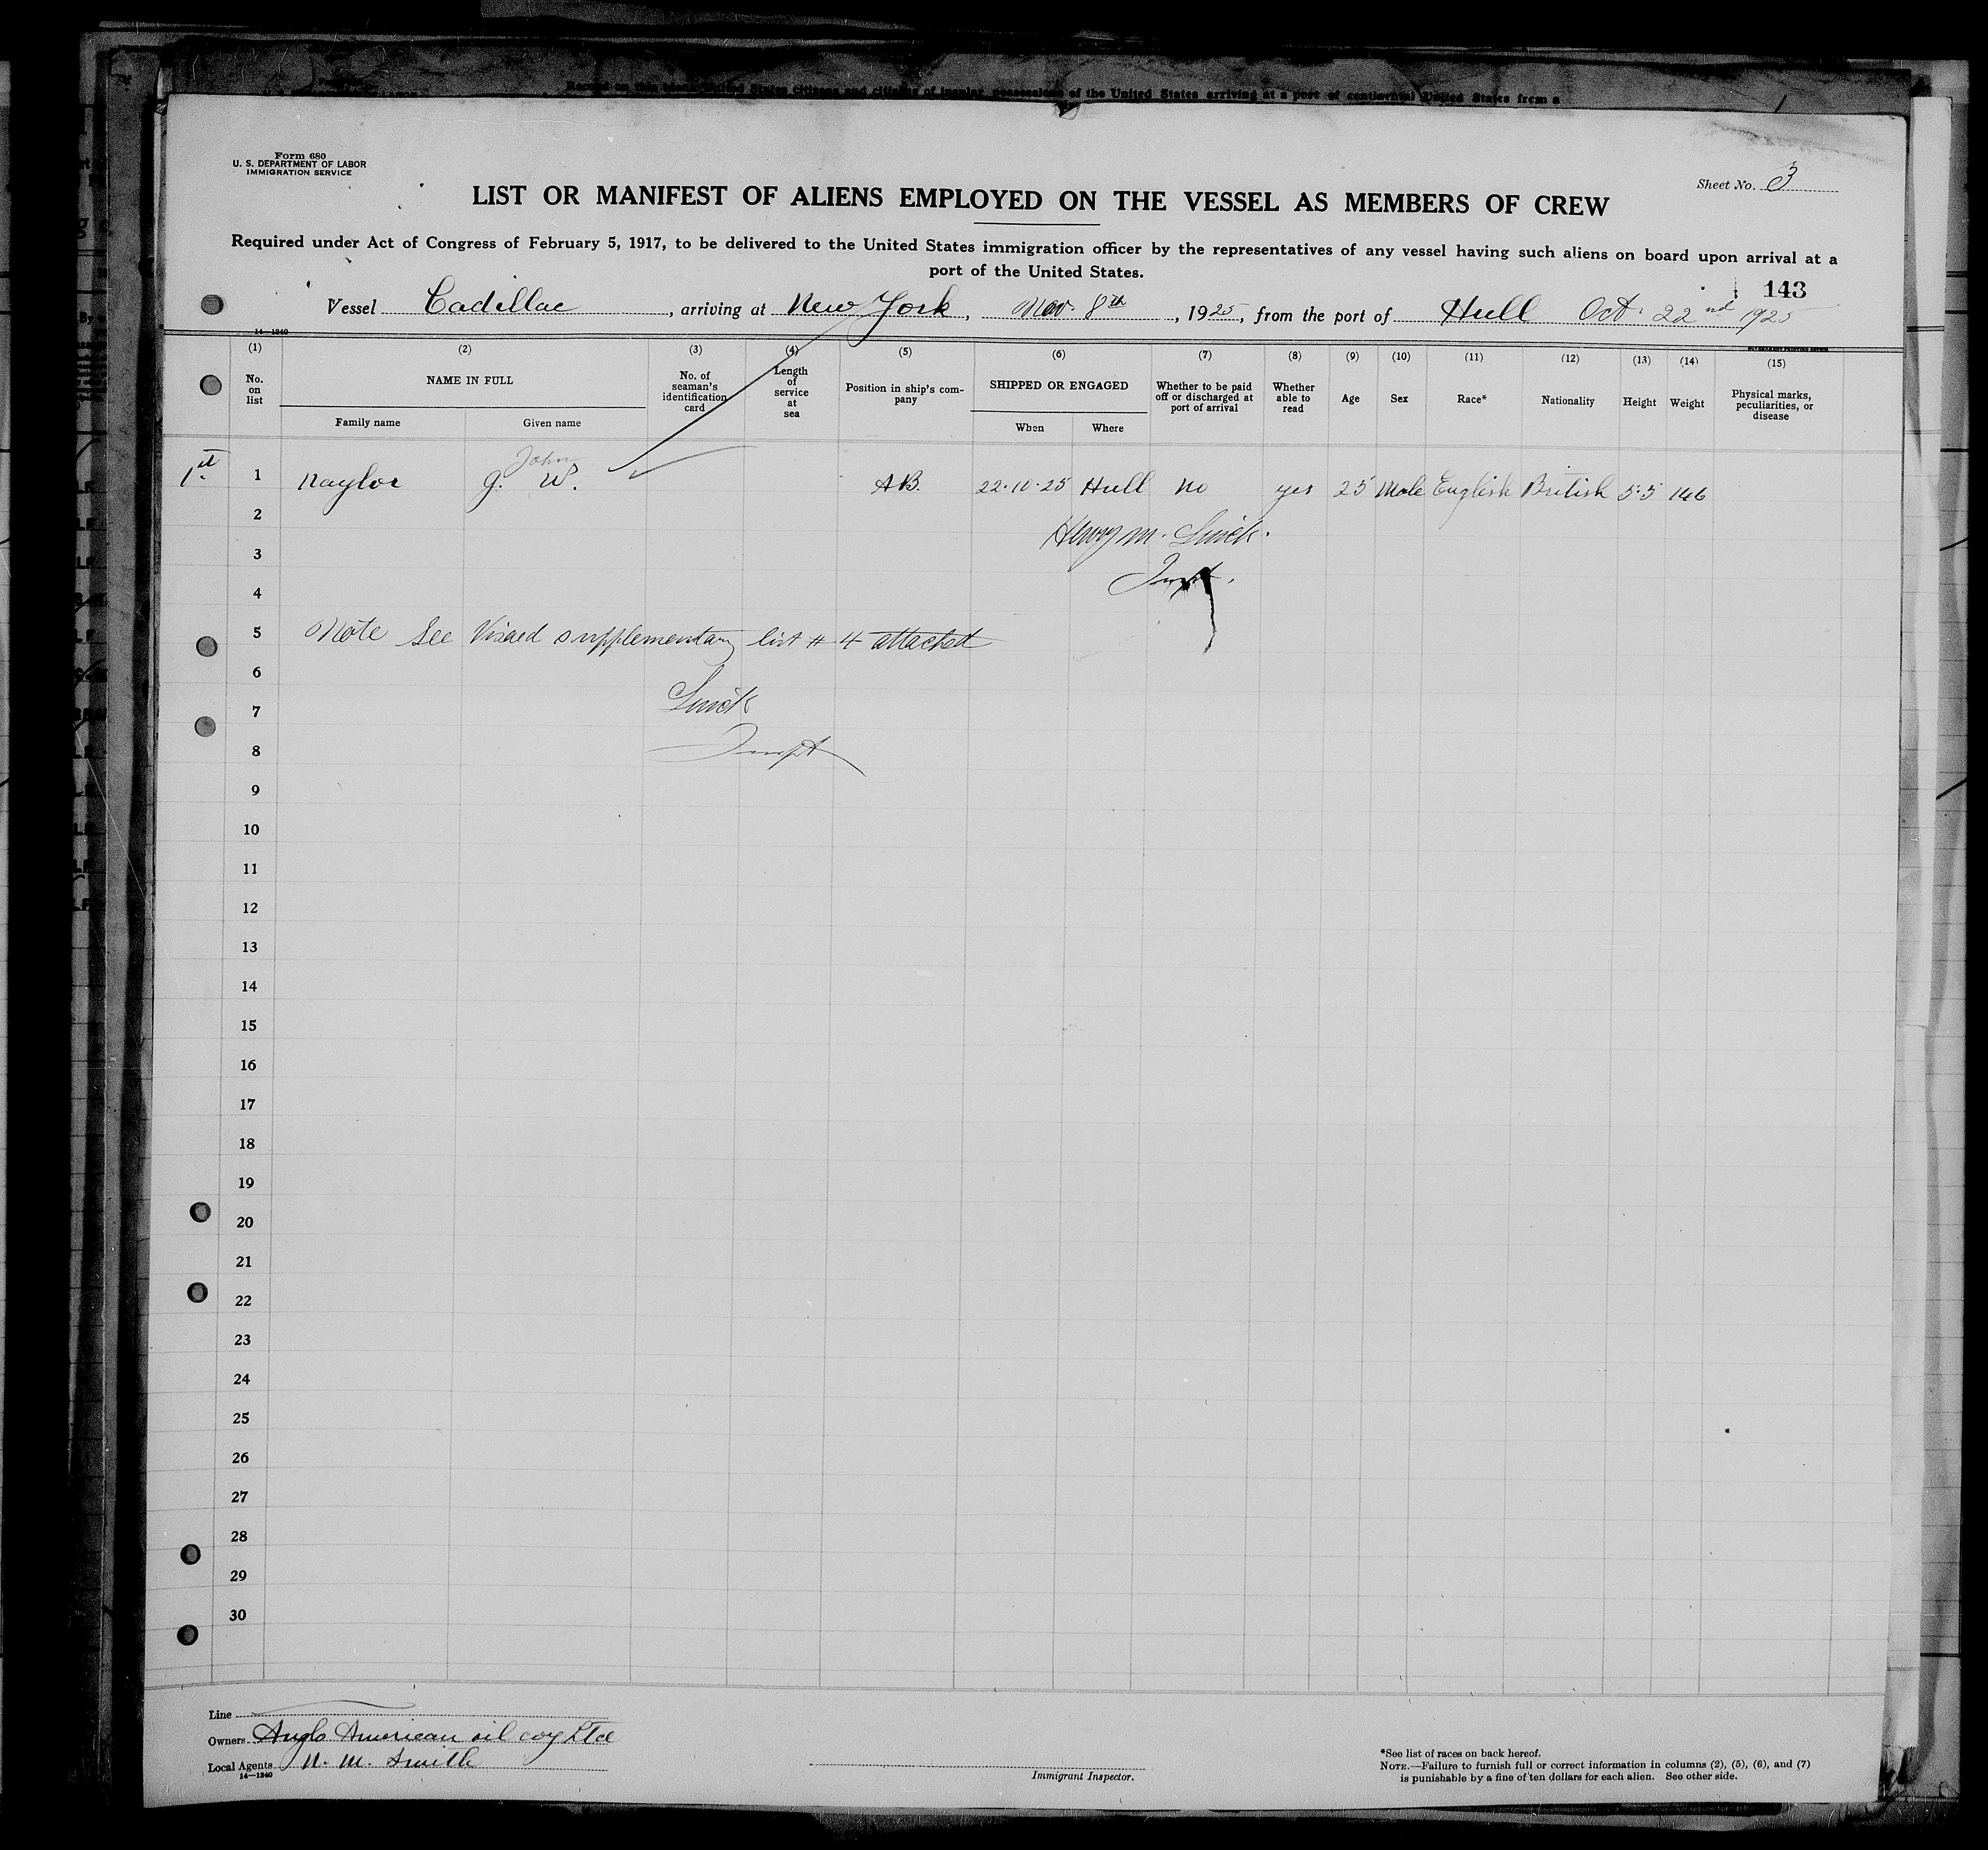 Recorded on this blank United States citizens and citizens of insular possessions of the United States arriving at a port of continental United States from a
Form 680
U. S. DEPARTMENT OF LABOR
IMMIGRATION SERVICE
Sheet No. 3
LIST OR MANIFEST OF ALIENS EMPLOYED ON THE VESSEL AS MEMBERS OF CREW
Required under Act of Congress of February 5, 1917, to be delivered to the United States immigration officer by the representatives of any vessel having such aliens on board upon arrival at a
port of the United States.
143
Vessel Cadillac, arriving at New York, Nov. 8th, 1925, from the port of Hull Oct. 22nd 1925
14—1240
(1) (2) (3) (4) (5) (6) (7) (8) (9) (10) (11) (12) (13) (14) (15)
No. on list
NAME IN FULL
Family name
Given name
No. of seaman's identification card
Length of service at sea
Position in ship's company
SHIPPED OR ENGAGED
When
Where
Whether to be paid off or discharged at port of arrival
Whether able to read
Age
Sex
Race*
Nationality
Height
Weight
Physical marks, peculiarities, or disease
John
1st 1 Naylor J. W. A.B. 22-10-25 Hull No yes 25 Male English British 5-5 146
2 Henry M.
3
Inspt.
4
5 Note See Visaed supplementary list # 4 attached
6
7
8 Inspt
9
10
11
12
13
14
15
16
17
18
19
20
21
22
23
24
25
26
27
28
29
30
Line
Owners Anglo American oil coy Ltd
Local Agents N. M. Smith
14—1240
Immigrant Inspector.
*See list of races on back hereof.
NOTE.—Failure to furnish full or correct information in columns (2), (5), (6), and (7)
is punishable by a fine of ten dollars for each alien. See other side.